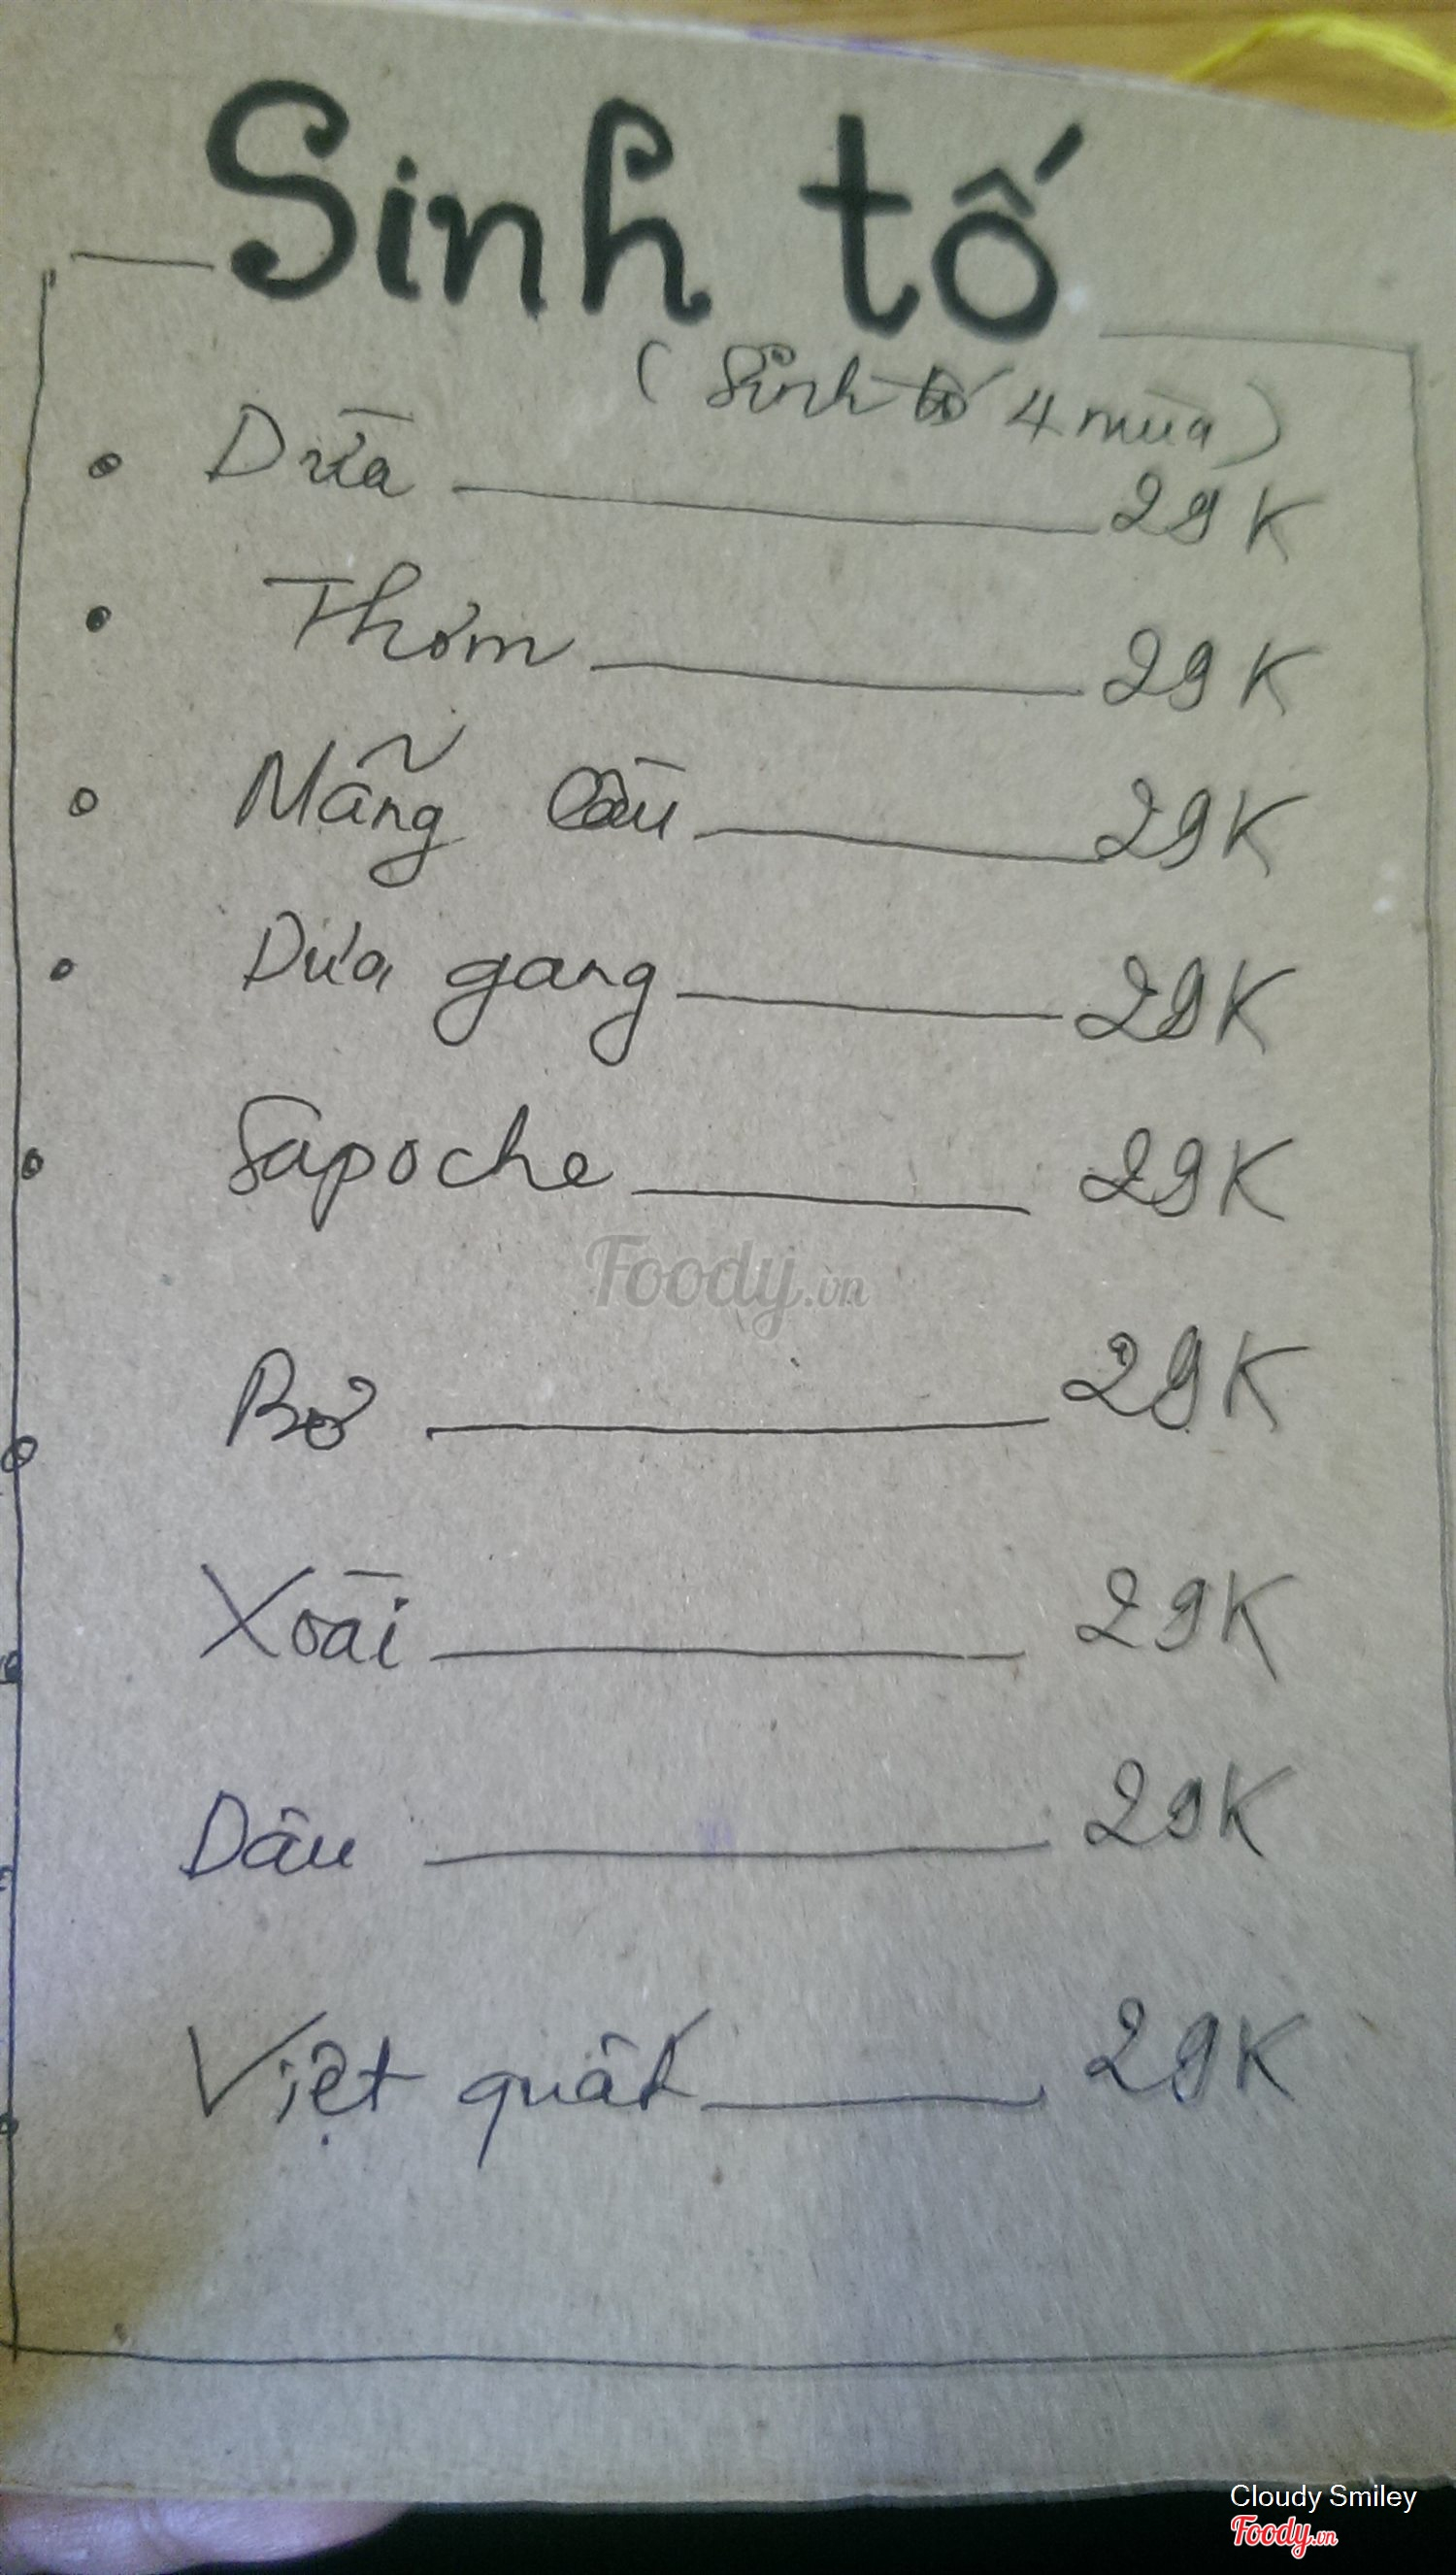 Sinh tố
(Sinh tố 4 mùa)
Dừa 29K
Thơm 29K
Mãng Cầu 29K
Dưa gang 29K
Sapoche 29K
Bơ 29K
Xoài 29K
Dâu 29K
Việt quất 29K
Foody.vn
Cloudy Smiley
Foody.vn